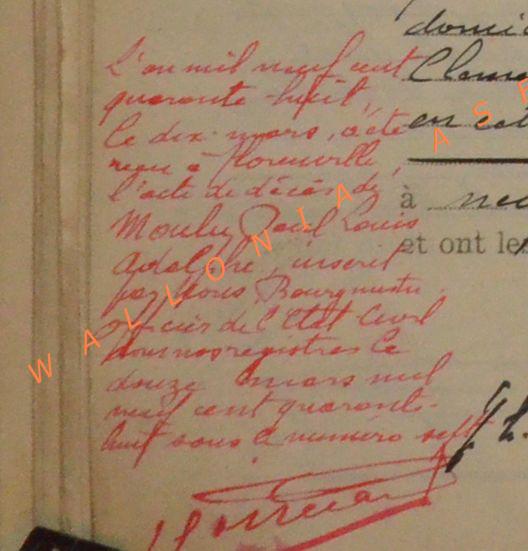 L'an mil neuf cent
quarante huit,
le dix mars, a été
reçu à Florenville,
l'acte de décès de,
Moulu Paul Louis
Adolphe, inscrit
par Nous Bourgmestre
officier de l'Etat Civil
dans nos registres le
douze mars mil
neuf cent quarante-
huit sous le numéro sept
domici
en
à
et ont les
WALLONIA AS